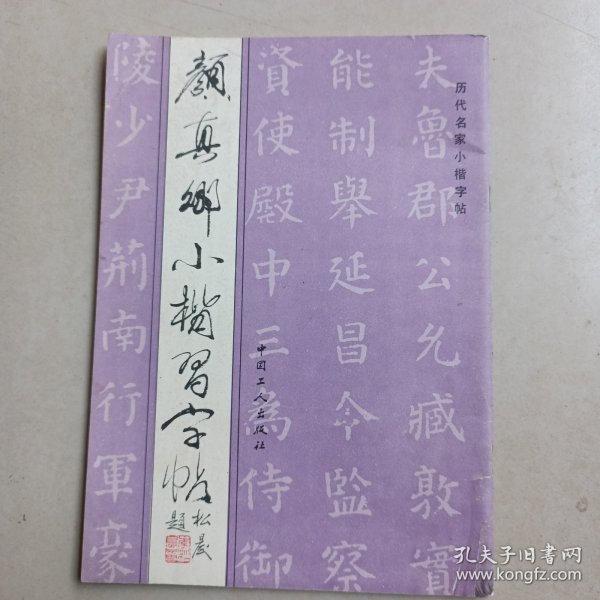 历代名家小楷字帖
夫魯郡公允臧敦實
能制舉延昌令監察
資使殿中三為侍御
中国工人出版社
顏真卿小楷習字帖
松晨
題
陵少尹荊南行軍豪
孔夫子旧书网
www.kongfz.com